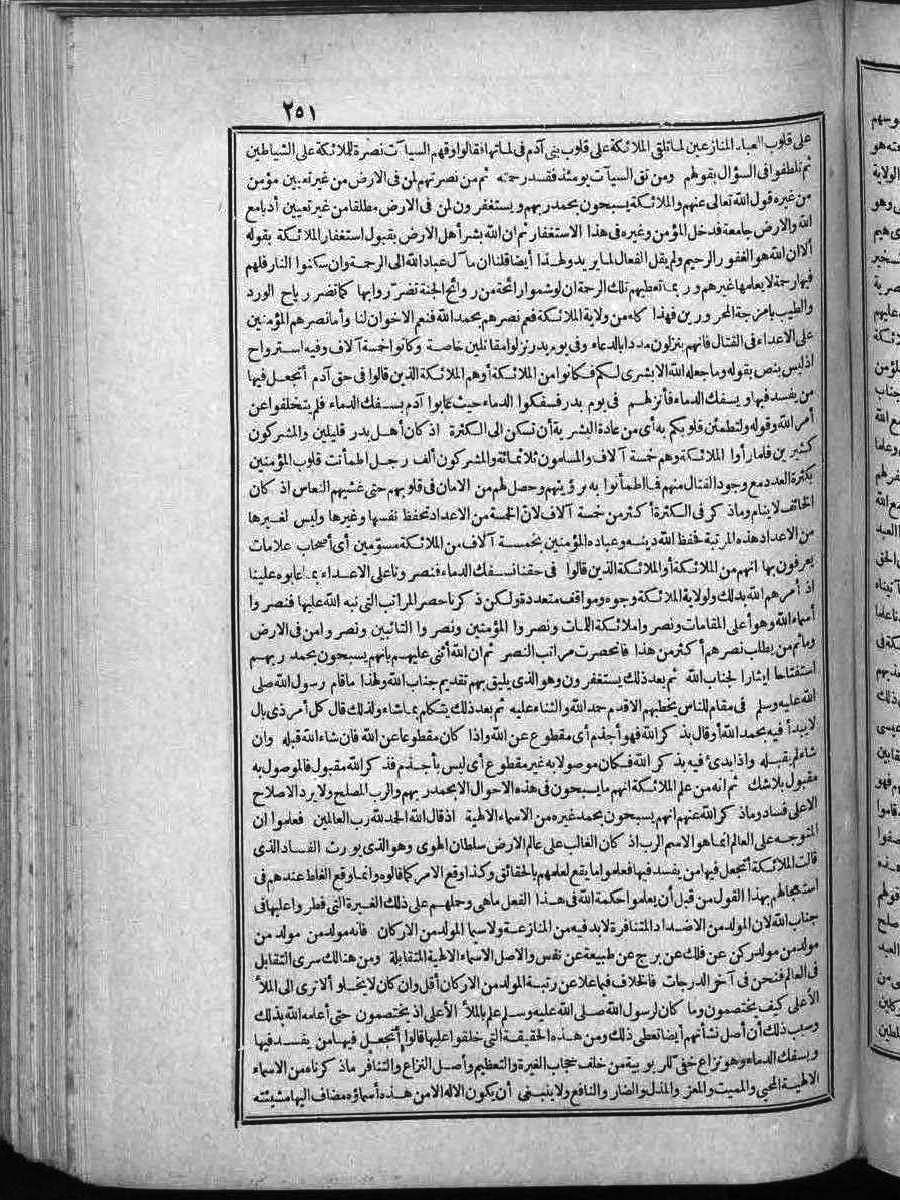 ٢٥١
على قلوب العباد المنازعين لما تلقى الملائكة على قلوب بنى آدم فى لماتها فقالوا وقهم السيآت نصرة للملائكة على الشياطين
ثم تلطفوا فى السؤال بقولهم ومن تق السيآت يومئذ فقد رحمته ثم من نصرتهم لمن فى الارض من غير تعيين مؤمن
من غيره قول الله تعالى عنهم والملائكة يسبحون بحمد ربهم ويستغفرون لمن فى الارض مطلقا من غير تعيين أدبا مع
الله والارض جامعة فدخل المؤمن وغيره فى هذا الاستغفار ثم ان الله بشر أهل الارض بقبول استغفار الملائكة بقوله
ألا ان الله هو الغفور الرحيم ولم يقل الفعال لما يريد ولهذا أيضا قلنا ان مآل عباد الله الى الرحمة وان سكنوا النار فلهم
فيها رحمة لا يعلمها غيرهم وربما تعطيهم تلك الرحمة ان لو شموا رائحة من روائح الجنة تضرّروا بها كما تضر رياح الورد
والطيب بامزجة المحرورين فهذا كله من ولاية الملائكة فعم نصرهم بحمد الله فنعم الاخوان لنا وأما نصرهم المؤمنين
على الاعداء فى القتال فانهم ينزلون مددا بالدعاء وفى يوم بدر نزلوا مقاتلين خاصة وكانوا خمسة آلاف وفيه استرواح
اذ ليس بنص بقوله وما جعله الله الا بشرى لكم فكانوا من الملائكة أو هم الملائكة الذين قالوا فى حق آدم أتجعل فيها
من يفسد فيها ويسفك الدماء فأنزلهم فى يوم بدر فسفكوا الدماء حيث عابوا آدم بسفك الدماء فلم يتخلفوا عن
أمر الله وقوله ولتطمئن قلوبكم به أى من عادة البشرية أن تسكن الى الكثرة اذ كان أهل بدر قليلين والمشركون
كثيرين فلما رأوا الملائكة وهم خمسة آلاف والمسلمون ثلثمائة والمشركون ألف رجل اطمأنت قلوب المؤمنين
بكثرة العدد مع وجود القتال منهم فما اطمأنوا به برؤيتهم وحصل لهم من الامان فى قلوبهم حتى غشيهم النعاس اذ كان
الخائف لا ينام وما ذكر فى الكثرة أكثر من خمسة آلاف لانّ الخمسة من الاعداد تحفظ نفسها وغيرها وليس لغيرها
من الاعداد هذه المرتبة فحفظ الله دينه وعباده المؤمنين بخمسة آلاف من الملائكة مسوّمين أى أصحاب علامات
يعرفون بها انهم من الملائكة أو الملائكة الذين قالوا فى حقنا نسفك الدماء فنصرونا على الاعداء بما عابوه علينا
اذ أمرهم الله بذلك ولولاية الملائكة وجوه ومواقف متعددة ولكن ذكرنا حصر المراتب التى نبه الله عليها فنصروا
أسماء الله وهو أعلى المقامات ونصروا ملائكة اللمات ونصروا المؤمنين ونصروا التائبين ونصروا من فى الارض
وما ثم من يطلب نصرهم أكثر من هذا فانحصرت مراتب النصر ثم ان الله أثنى عليهم بانهم يسبحون بحمد ربهم
استفتاحا ايثارا لجناب الله ثم بعد ذلك يستغفرون وهو الذى يليق بهم تقديم جناب الله ولهذا ما قام رسول الله صلى
الله عليه وسلم فى مقام للناس يخطبهم الا قدم حمد الله والثناء عليه ثم بعد ذلك يتكلم بما شاء ولذلك قال كل أمر ذى بال
لا يبدأ فيه بحمد الله أو قال بذكر الله فهو أجذم أى مقطوع عن الله واذا كان مقطوعا عن الله فان شاء الله قبله وان
شاء لم يقبله واذا بدئ فيه بذكر الله فكان موصولا به غير مقطوع أى ليس بأجذم فذكر الله مقبول فالموصول به
مقبول بلا شك ثم انه من علم الملائكة انهم ما يسبحون فى هذه الاحوال الا بحمد ربهم والرب المصلح ولا يرد الاصلاح
الا على فساد وما ذكر الله عنهم انهم يسبحون بحمد غيره من الاسماء الالهية اذ قال الله الحمد لله رب العالمين فعلموا ان
المتوجه على العالم انما هو الاسم الرب اذ كان الغالب على عالم الارض سلطان الهوى وهو الذى يورث الفساد الذى
قالت الملائكة أتجعل فيها من يفسد فيها فعلموا ما يقع لعلمهم بالحقائق وكذا وقع الامر كما قالوه وانما وقع الغلط عندهم فى
استعجالهم بهذا القول من قبل أن يعلموا حكمة الله فى هذا الفعل ما هى وحملهم على ذلك الغيرة التى فطروا عليها فى
جناب الله لان المولد من الاضداد المتنافرة لابد فيه من المنازعة ولا سيما المولد من الاركان فانه مولد من مولد من
مولد من مولد ركن عن فلك عن برج عن طبيعة عن نفس والاصل الاسماء الالهية المتقابلة ومن هنالك سرى التقابل
فى العالم فنحن فى آخر الدرجات فالخلاف فيما علا عن رتبة المولد من الاركان أقل وان كان لا يخلو ألا ترى الى الملأ
الأعلى كيف يختصمون وما كان لرسول الله صلى الله عليه وسلم علم بالملأ الأعلى اذ يختصمون حتى أعلمه الله بذلك
وسبب ذلك أن أصل نشأتهم أيضا تعطى ذلك ومن هذه الحقيقة التى خلقوا عليها قالوا أتجعل فيها من يفسد فيها
ويسفك الدماء وهو نزاع خفى للربوبية من خلف حجاب الغيرة والتعظيم وأصل النزاع والتنافر ما ذكرناه من الاسماء
الالهية المحيى والمميت والمعز والمذل والضار والنافع ولا ينبغى أن يكون الاله الا من هذه أسماؤه مضاف اليها مشيئته